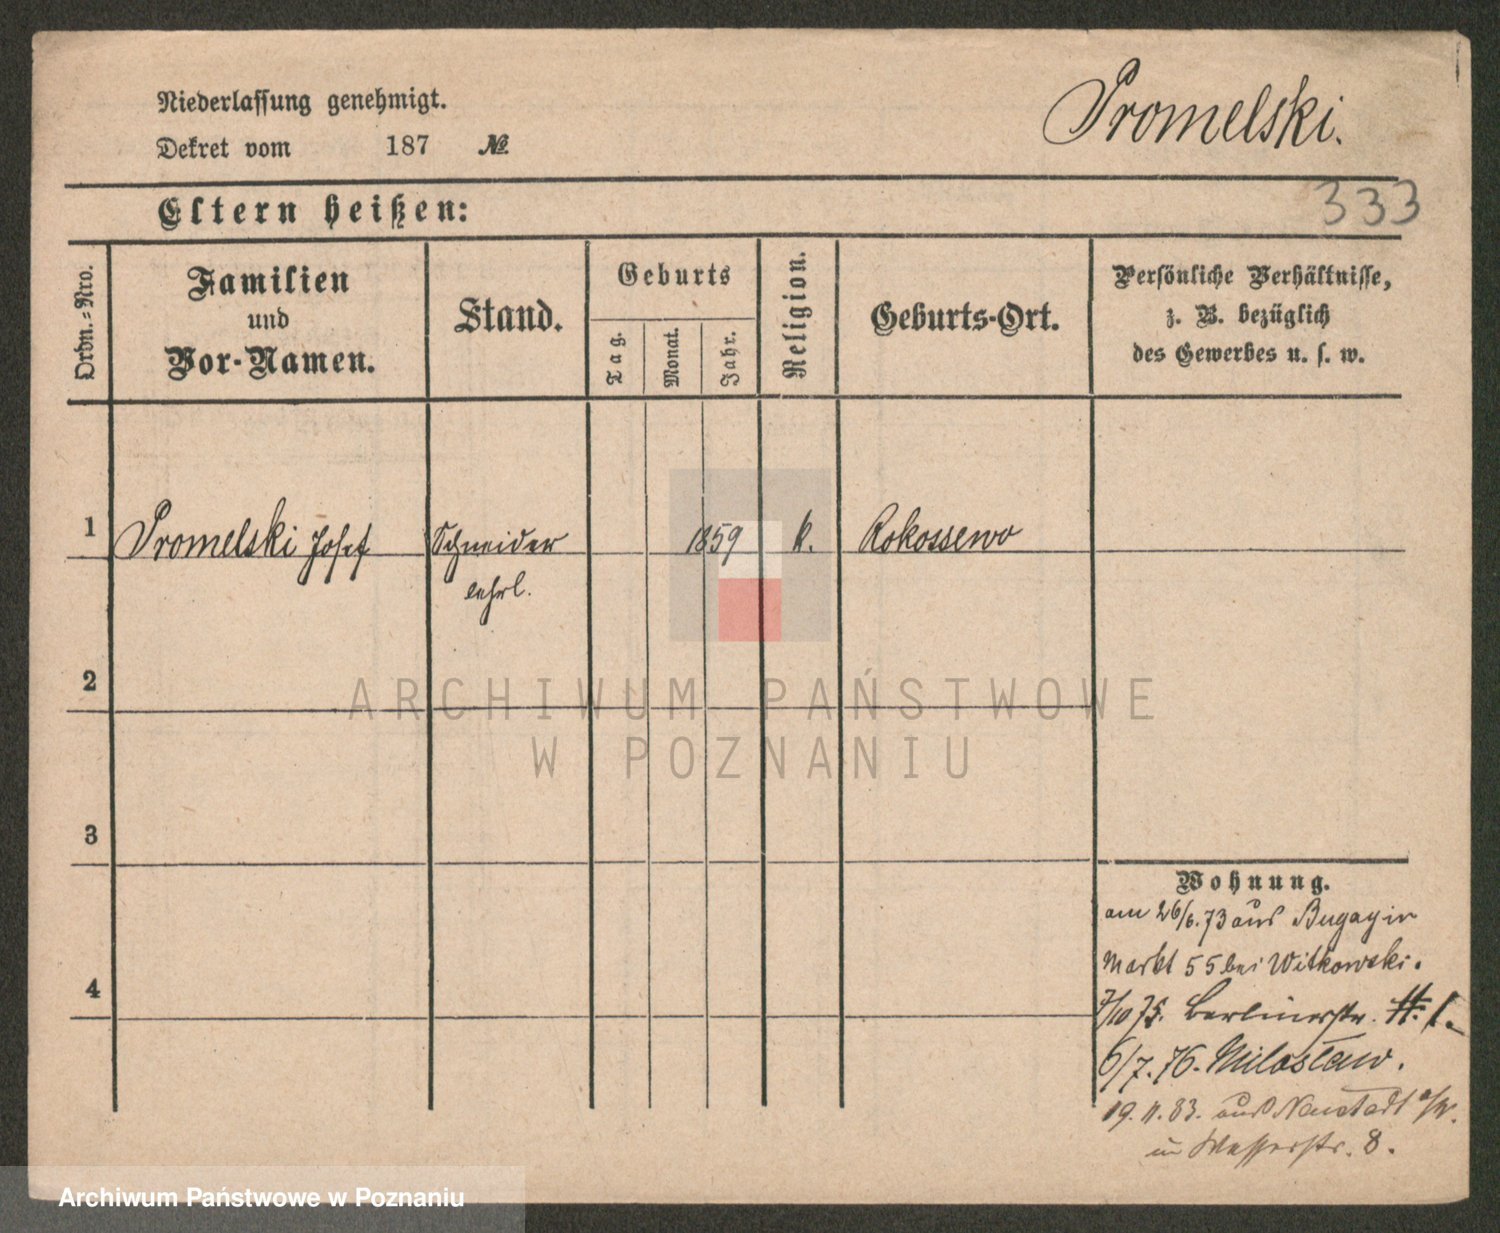 Niederlassung genehmigt.
Promelski.
Dekret vom 187 №
333
Eltern heißen:
Ordn.=Nro.
Familien
und
Vor-Namen.
Stand.
Geburts
Tag.
Monat.
Jahr.
Religion.
Geburts-Ort.
Persönliche Verhältnisse,
z. B. bezüglich
des Gewerbes u. s. w.
1 Promelski Josef Schneider 1859 k. Rokossewo
lehrl.
2
ARCHIWUM PAŃSTWOWE
W POZNANIU
3
Wohnung.
am 26/6.73 aus Bugay in
Markt 55 bei Witkowski.
4
7/10 75. Berlinerstr. 1.
6/7.76. Miloslaw.
19.11.83. aus Neustadt a/W.
in Wasserstr. 8.
Archiwum Państwowe w Poznaniu